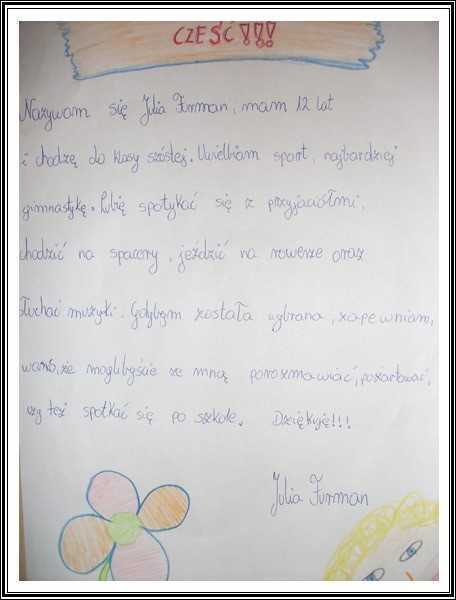 CZEŚĆ!!!
Nazywam się Julia Furman, mam 12 lat
i chodzę do klasy szóstej. Uwielbiam sport, najbardziej
gimnastykę. Lubię spotykać się z przyjaciółmi,
chodzić na spacery, jeździć na rowerze oraz
słuchać muzyki. Gdybym została wybrana, zapewniam,
was, że moglibyście ze mną porozmawiać, pożartować,
czy też spotkać się po szkole. Dziękuję!!!
Julia Furman